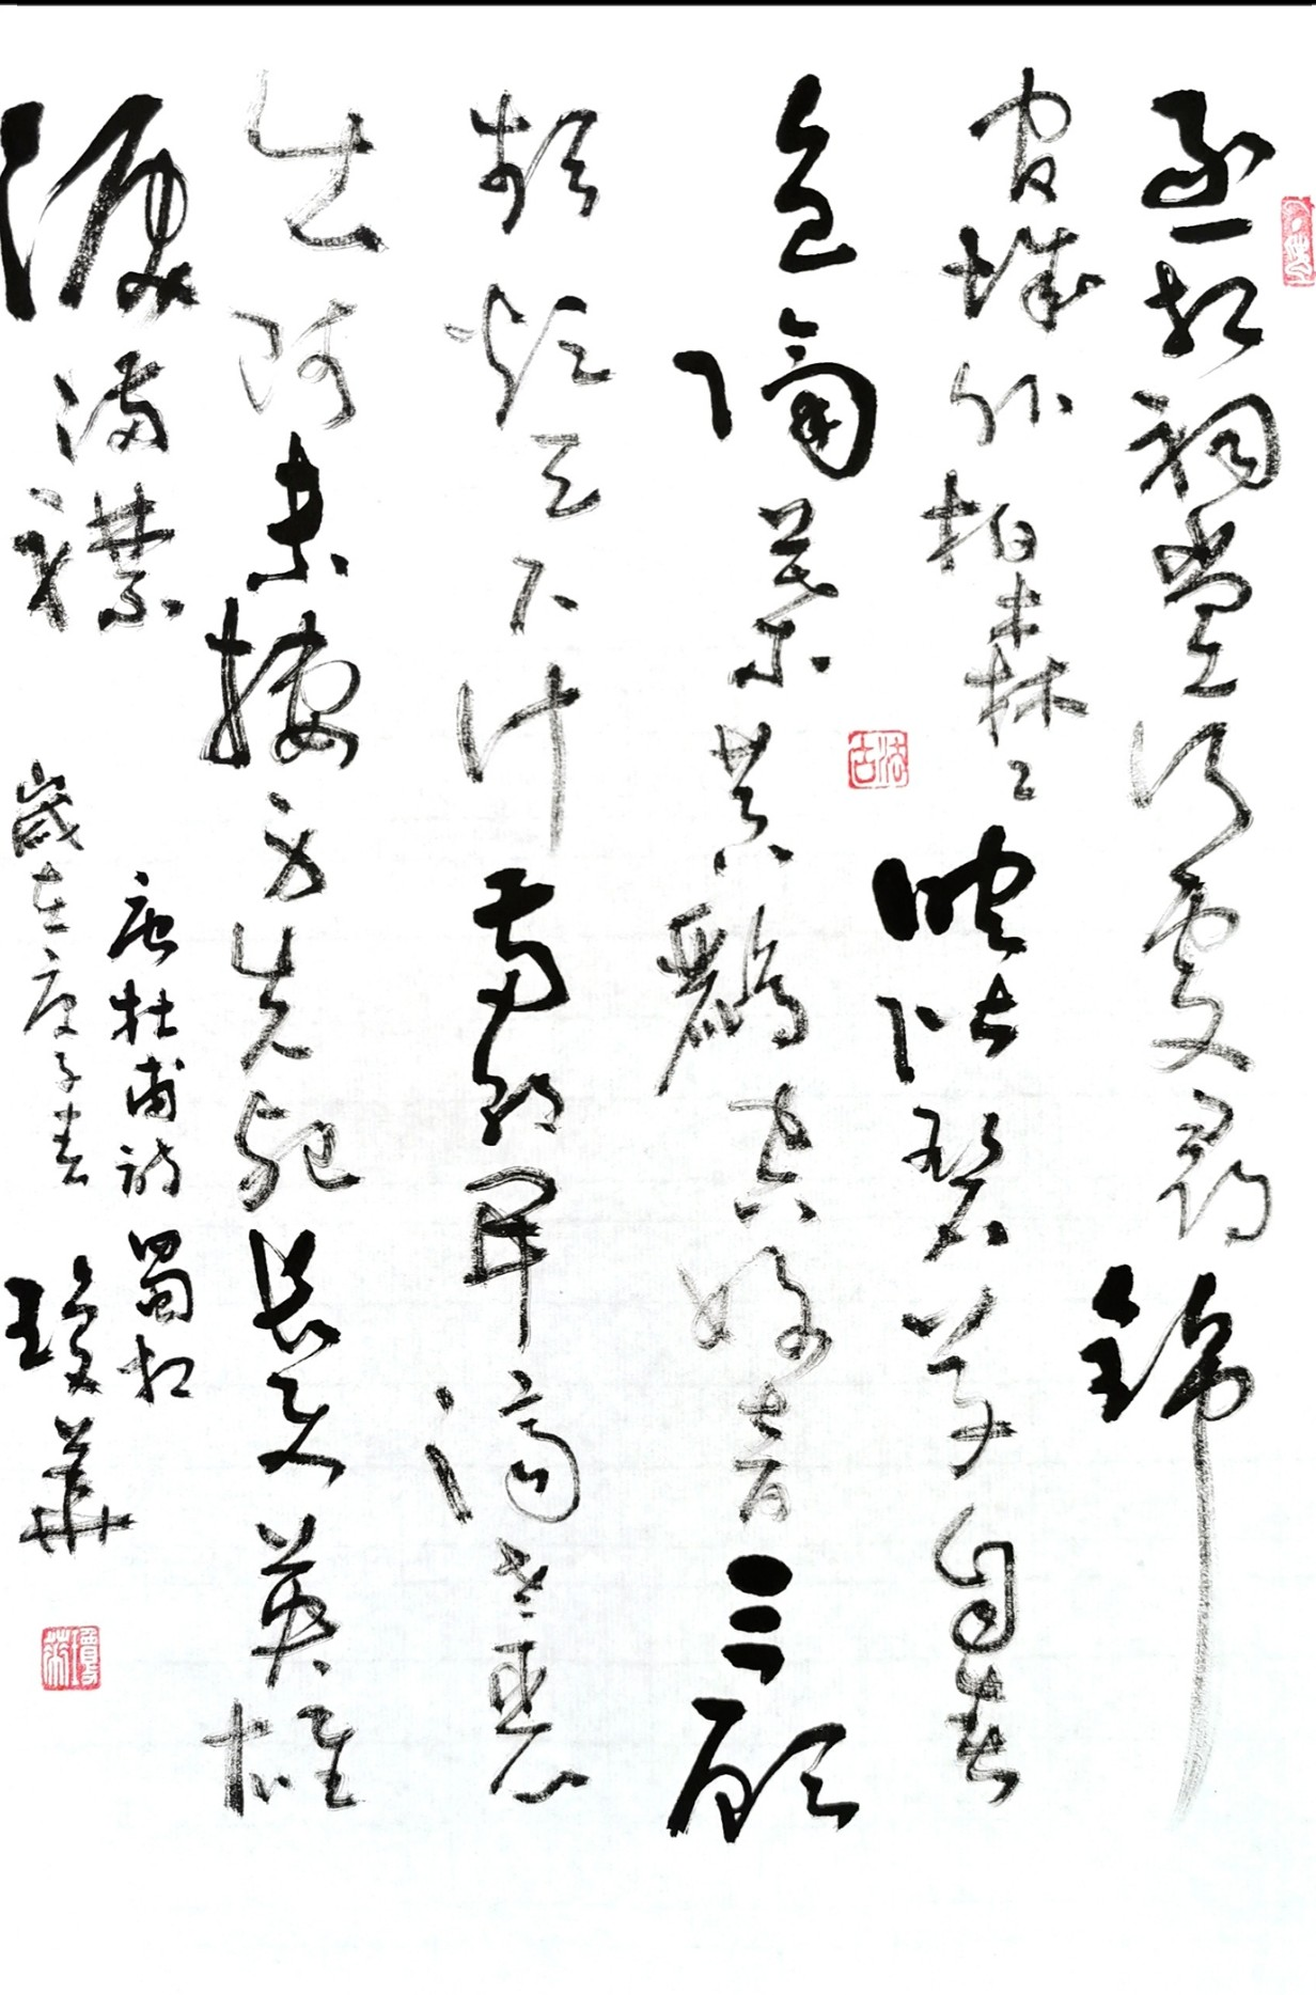 丞相祠堂何處尋錦
官城外柏森々映階碧草自春
色隔葉黃鸝空好音三顧
頻煩天下計兩朝開濟老臣心
出師未捷身先死長使英雄
淚滿襟
唐杜甫詩蜀相
歲在庚子春 瓊華
法古